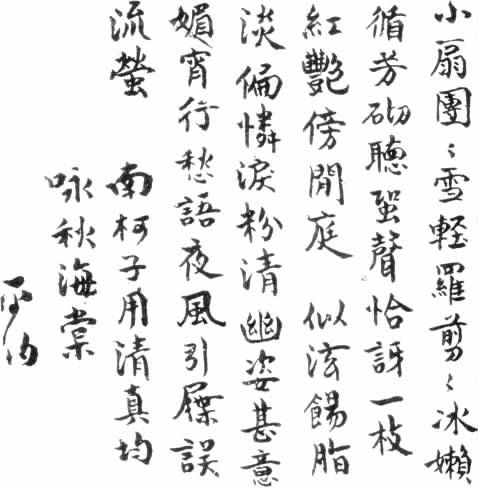 小扇團〻雪輕羅剪〻冰嬾
循芳砌聽蛩聲恰訝一枝
紅艷傍閒庭 似泫餳脂
淡偏憐淚粉清幽姿甚意
媚宵行愁語夜風引屧誤
流螢 南柯子用清真均
咏秋海棠